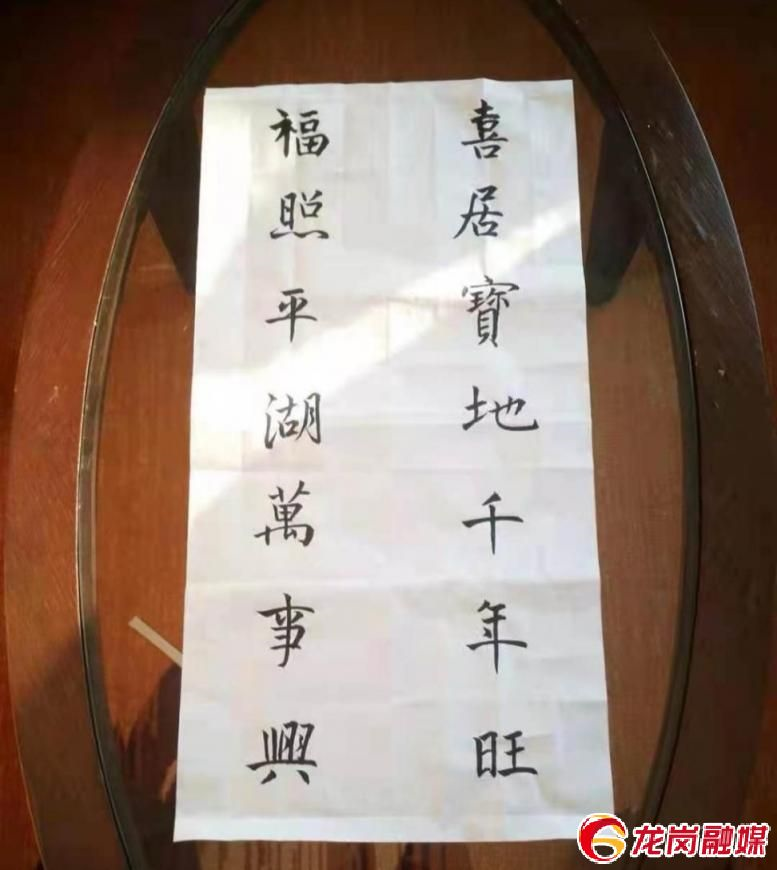 喜居寶地千年旺
福照平湖萬事興
龙岗融媒